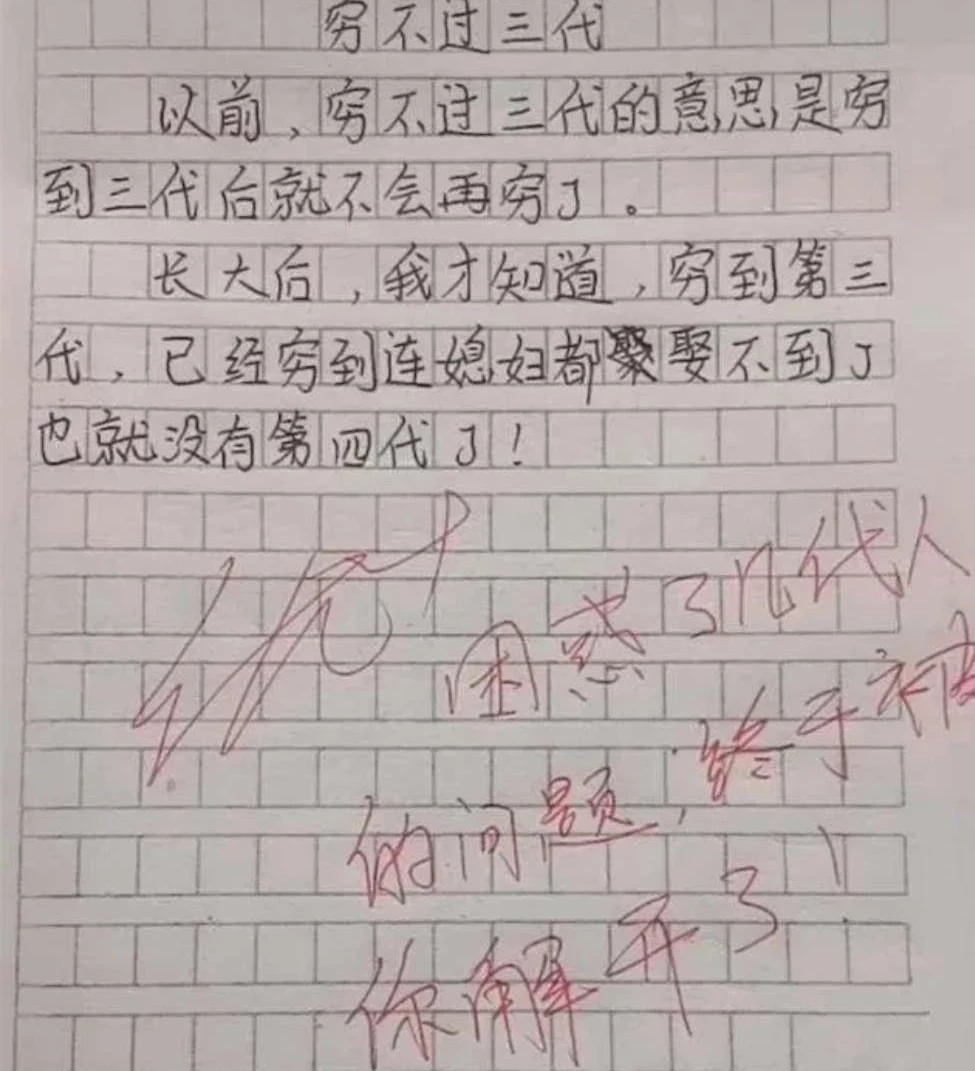 穷不过三代
以前，穷不过三代的意思是穷
到三代后就不会再穷了。
长大后，我才知道，穷到第三
代，已经穷到连媳妇都娶不到了
也就没有第四代了！
优+
困惑了几代人
的问题，终于被
你解开了